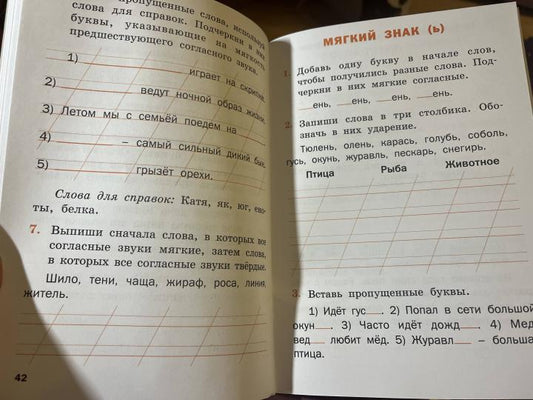 пропущенные слова, используй
слова для справок. Подчеркни в них
буквы, указывающие на мягкость
предшествующего согласного звука.
1) играет на скрипке.
2) ведут ночной образ жизни.
3) Летом мы с семьёй поедем на
4) – самый сильный дикий бык.
5) грызёт орехи.
Слова для справок: Катя, як, юг, ено-
ты, белка.
7. Выпиши сначала слова, в которых все
согласные звуки мягкие, затем слова,
в которых все согласные звуки твёрдые.
Шило, тени, чаща, жираф, роса, линия,
житель.
42
МЯГКИЙ ЗНАК (ь)
1. Добавь одну букву в начале слов,
чтобы получились разные слова. Под-
черкни в них мягкие согласные.
__ень, __ень, __ень, __ень.
2. Запиши слова в три столбика. Обо-
значь в них ударение.
Тюлень, олень, карась, голубь, соболь,
гусь, окунь, журавль, пескарь, снегирь.
Птица Рыба Животное
3. Вставь пропущенные буквы.
1) Идёт гус__. 2) Попал в сети большой
окун__. 3) Часто идёт дожд__. 4) Мед-
вед__ любит мёд. 5) Журавл__ – большая
птица.